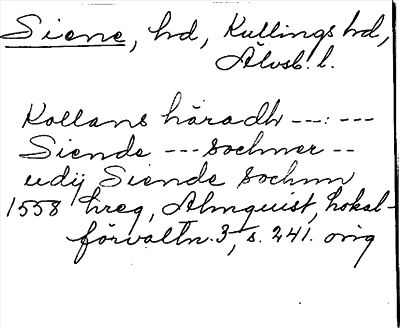 Siene, hd, Kullings hd,
Älvsb. l.
Kollans háradh ---:---
Siende --- sochner --
udij Siende sochnn
1558 hreg, Almquist, Lokal-
förvaltn. 3, s. 241. orig